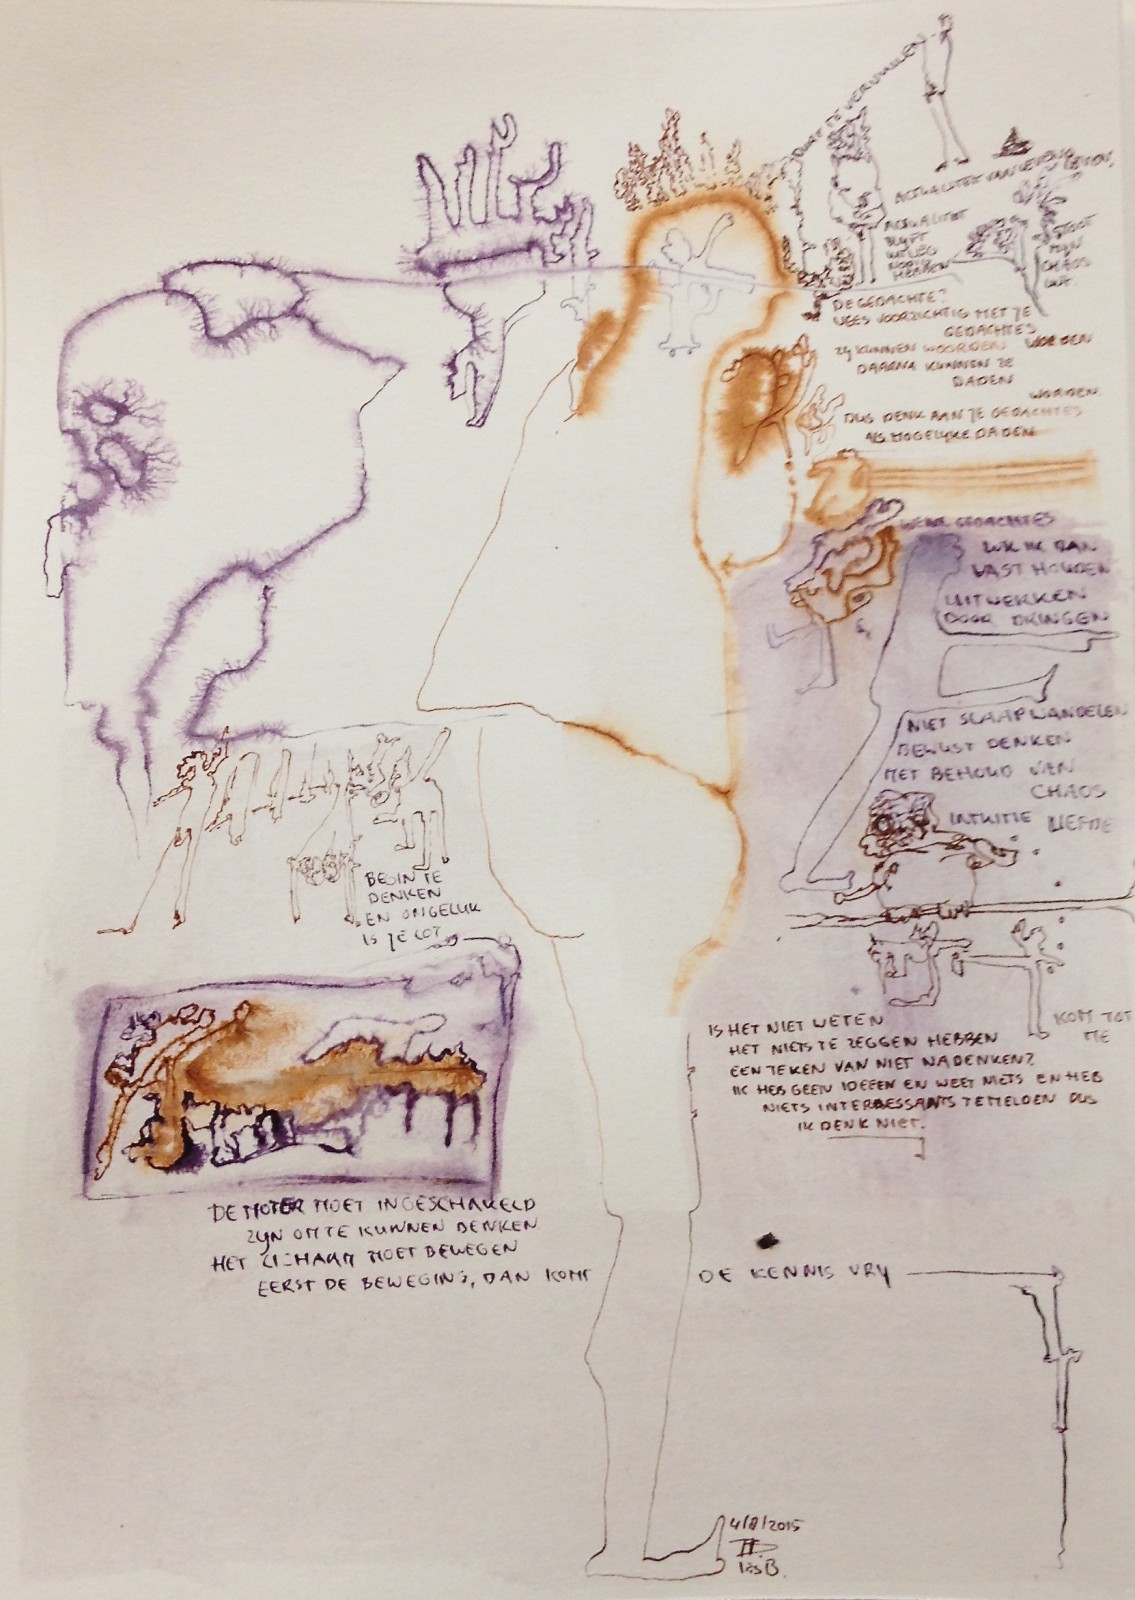 DOOR TE VERVUILEN
ACTUALITEIT VAN LEVEND LEVEN,
ACTUALITEIT
BLYFT
WEG
NOOIT
HEBBEN
STOOT
MYN
CHAOS
UIT.
DE GEDACHTE?
WEES VOORZICHTIG MET JE
GEDACHTES
ZY KUNNEN WOORDEN WORDEN
DAARNA KUNNEN ZE
DADEN
WORDEN.
DUS DENK AAN JE GEDACHTES
ALS MOGELYKE DADEN
WELKE GEDACHTES
WIL IK DAN
VAST HOUDEN
UITWERKEN
DOOR DRINGEN
NIET SLAAPWANDELEN
BEWUST DENKEN
MET BEHOUD VAN
CHAOS
INTUITIE LIEFDE
BEGIN TE
DENKEN
EN ONGELUK
IS JE LOT
KOM TOT
ME
IS HET NIET WETEN
HET NIETS TE ZEGGEN HEBBEN
EEN TEKEN VAN NIET NADENKEN?
IK HEB GEEN IDEEEN EN WEET NIETS EN HEB
NIETS INTERESSANTS TE MELDEN DUS
IK DENK NIET.
DE MOTER MOET INGESCHAKELD
ZYN OM TE KUNNEN DENKEN
HET LICHAAM MOET BEWEGEN
EERST DE BEWEGING, DAN KOMT DE KENNIS VRY
4/8/2015